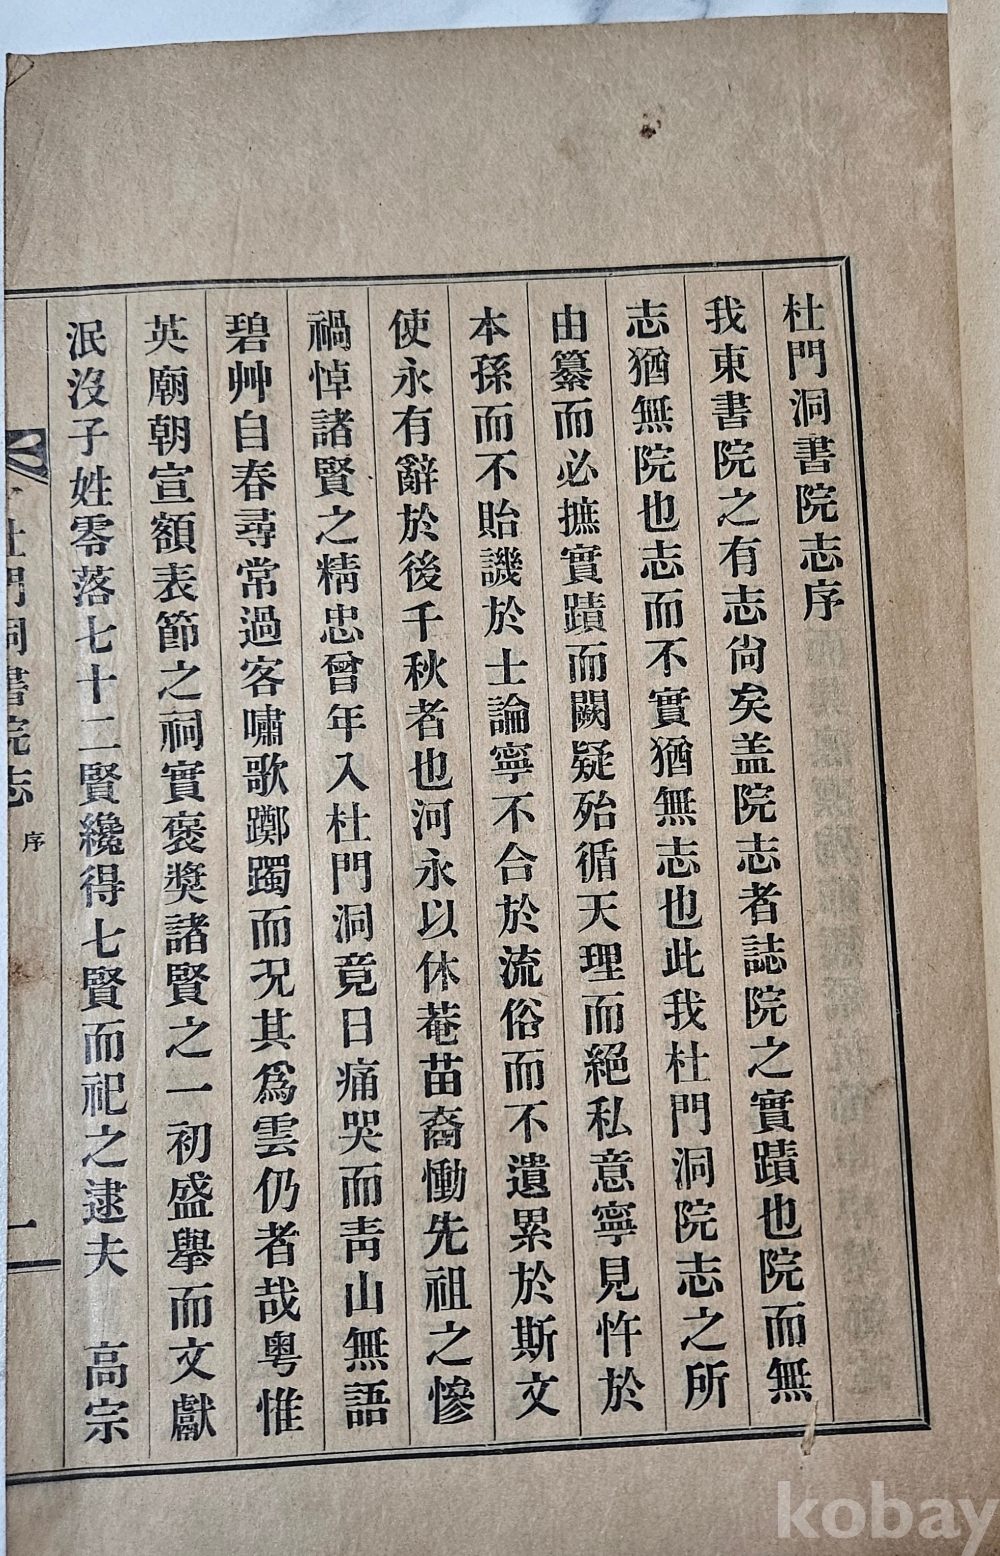 杜門洞書院志序
我東書院之有志尙矣盖院志者誌院之實蹟也院而無
志猶無院也志而不實猶無志也此我杜門洞院志之所
由纂而必摭實蹟而闕疑殆循天理而絕私意寧見忤於
本孫而不貽譏於士論寧不合於流俗而不遺累於斯文
使永有辭於後千秋者也河永以休菴苗裔慟先祖之慘
禍悼諸賢之精忠曾年入杜門洞竟日痛哭而靑山無語
碧艸自春尋常過客嘯歌躑躅而况其爲雲仍者哉粤惟
英廟朝宣額表節之祠實褒奬諸賢之一初盛擧而文獻
泯沒子姓零落七十二賢纔得七賢而祀之逮夫 高宗
杜門洞書院志 序 一
kobay